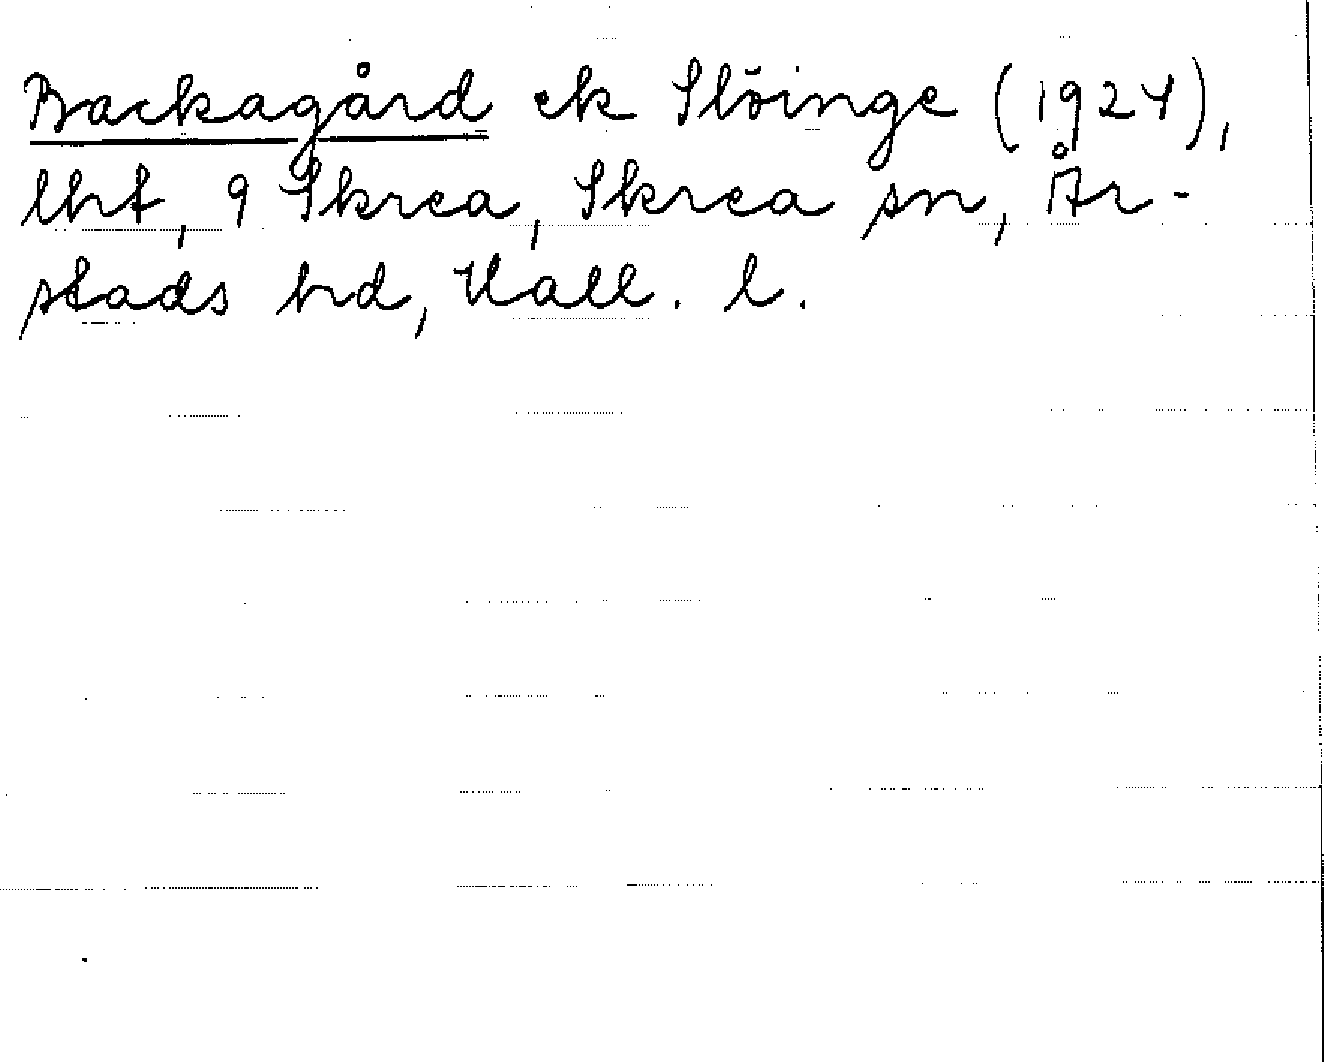 Backagård ek Slöinge (1924),
lht, 9 Skrea, Skrea sn, År-
stads hd, Hall. l.